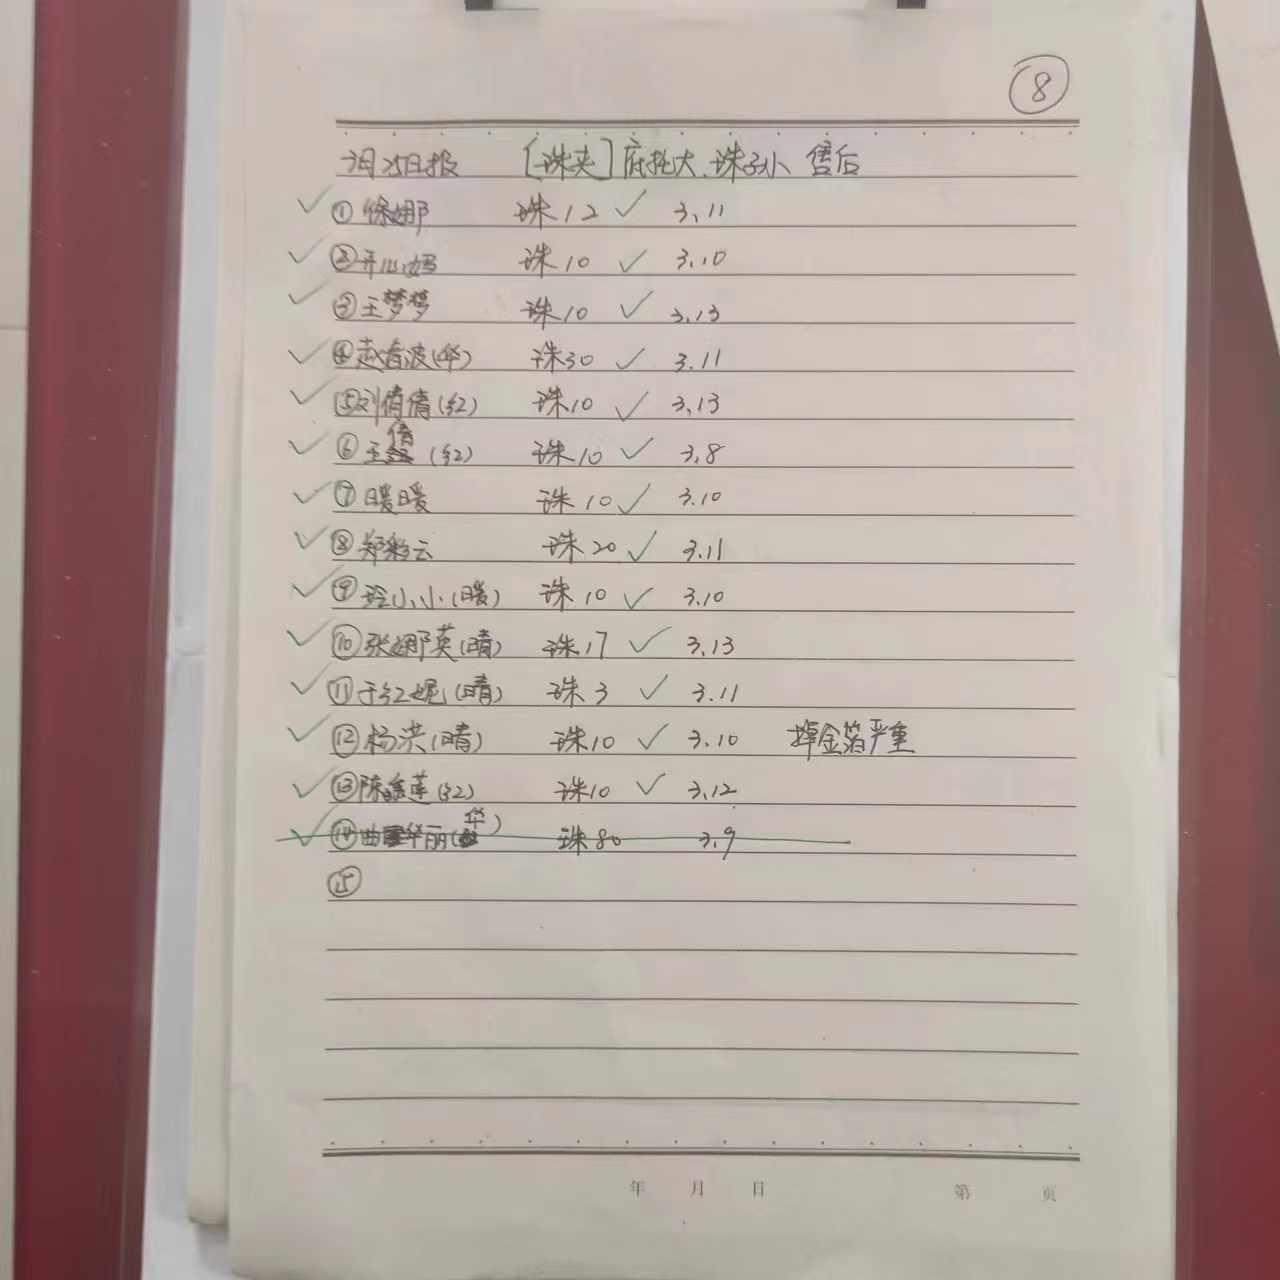 ⑧
3月25日报 [珠夹]底托大.珠子小 售后
✓ ① 徐娜 珠12 ✓ 3.11
✓ ② 开心妈 珠10 ✓ 3.10
✓ ③ 王梦梦 珠10 ✓ 3.13
✓ ④ 赵春波(华) 珠30 ✓ 3.11
✓ ⑤ 刘倩倩(红) 珠10 ✓ 3.13
✓ ⑥ 王倩(红) 珠10 ✓ 3.8
✓ ⑦ 暖暖 珠10 ✓ 3.10
✓ ⑧ 郑彩云 珠20 ✓ 3.11
✓ ⑨ 玲小小(暖) 珠10 ✓ 3.10
✓ ⑩ 张娜英(晴) 珠17 ✓ 3.13
✓ ⑪ 于红妮(晴) 珠3 ✓ 3.11
✓ ⑫ 杨洪(晴) 珠10 ✓ 3.10 掉金箔严重
✓ ⑬ 陈莲(红) 珠10 ✓ 3.12
✓ ⑭ 曲华丽(华) 珠80 3.9
⑮
年 月 日 第 页